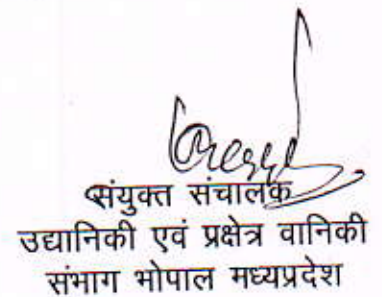 संयुक्त संचालक
उद्यानिकी एवं प्रक्षेत्र वानिकी
संभाग भोपाल मध्यप्रदेश